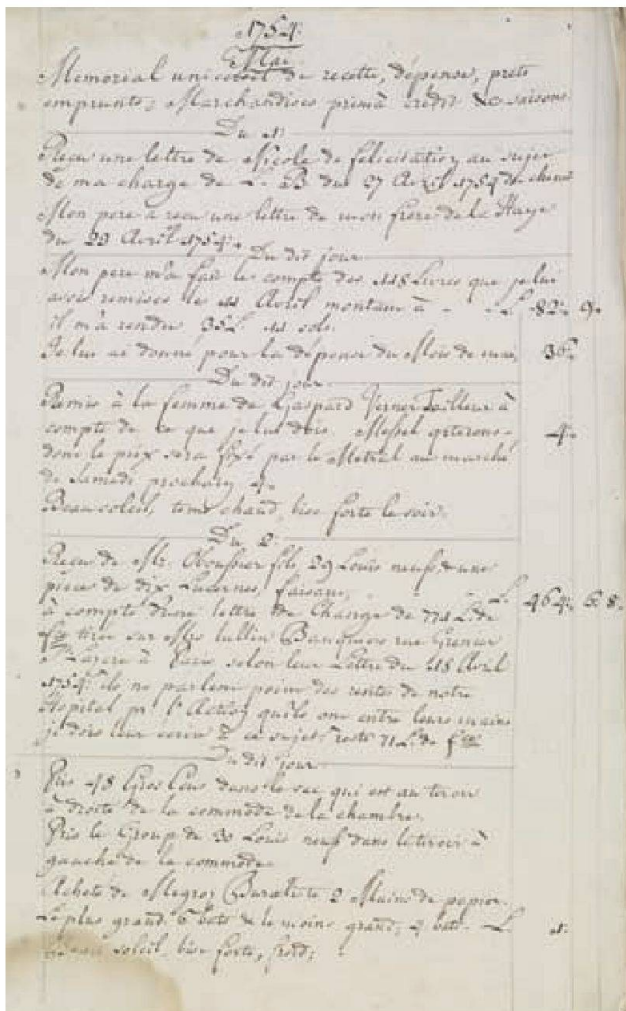 1754.
Mai.
Memorial universel de recette, dépense, prets
emprunts, Marchandises prim à crédit & saisons.
Du 1.
Reçu une lettre de Nicole de félicitation au sujet
de ma charge de L. B du 27 Avril 1754 de
Mon pere a recu une lettre de mon frere de la Haye
du 23 Avril 1754.
Du dit jour.
Mon pere m'a fait le compte des 118 Livres que je lui
avois remises le 11 Avril montant à - - L. 82. 9.
il m'a rendu 35 L. 11 sols.
Je lui ai donné pour la dépense du Mois de mai, 36.
Du dit jour.
Remis à la femme de Gaspard Verner Tailleur à
compte de ce que je lui dois Messel 4.
dont le prix sera fixé par le Metral au marché
de Samedi prochain 4.
Beau soleil, tems chaud, bise forte le soir.
Du 2.
Recu de Mr. fils, 29 Louis neufs, & une
piece de dix Lucernes, faisant, L. 464. 6. 8.
à compte d'une lettre de Change de 774 L. de
tirée sur Mrs Lullin Banquiers rue Grenier
St Lazare à Paris selon leur Lettre du 18 Avril
1754. ils ne parlent point des rentes de notre
Hopital pr. l'Action qu'ils ont entre leurs mains
je dois leur ecrire à ce sujet. reste 71 L. de
Du dit jour.
Pris 48 Gros Ecus dans le sac qui est au tiroir
à droite de la commode de la chambre.
Pris le Group de 30 Louis neuf dans le tiroir à
gauche de la commode.
Acheté de 2 Mains de papier.
Le plus grand 6 batz & le moins grand, 4 batz. L. 1.
soleil, bise forte, froid;